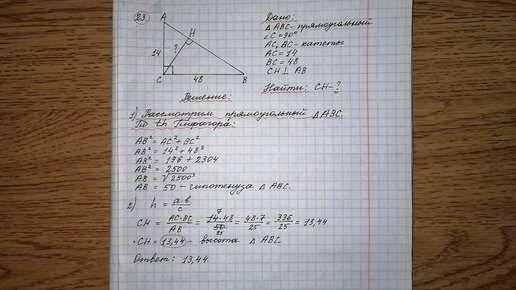 23.
Дано:
△ ABC - прямоугольный
∠C = 90°
AC, BC - катеты
AC = 14
BC = 48
CH ⊥ AB
Найти: CH - ?
A
H
14
?
C
48
B
Решение:
1) Рассмотрим прямоугольный △ ABC.
По th Пифагора:
AB² = AC² + BC²
AB² = 14² + 48²
AB² = 196 + 2304
AB² = 2500
AB = √2500
AB = 50 - гипотенуза △ ABC.
2) h = a·b/c
CH = AC·BC/AB = 14·48/50 = 48·7/25 = 336/25 = 13,44
7
25
CH = 13,44 - высота △ ABC.
Ответ: 13,44.